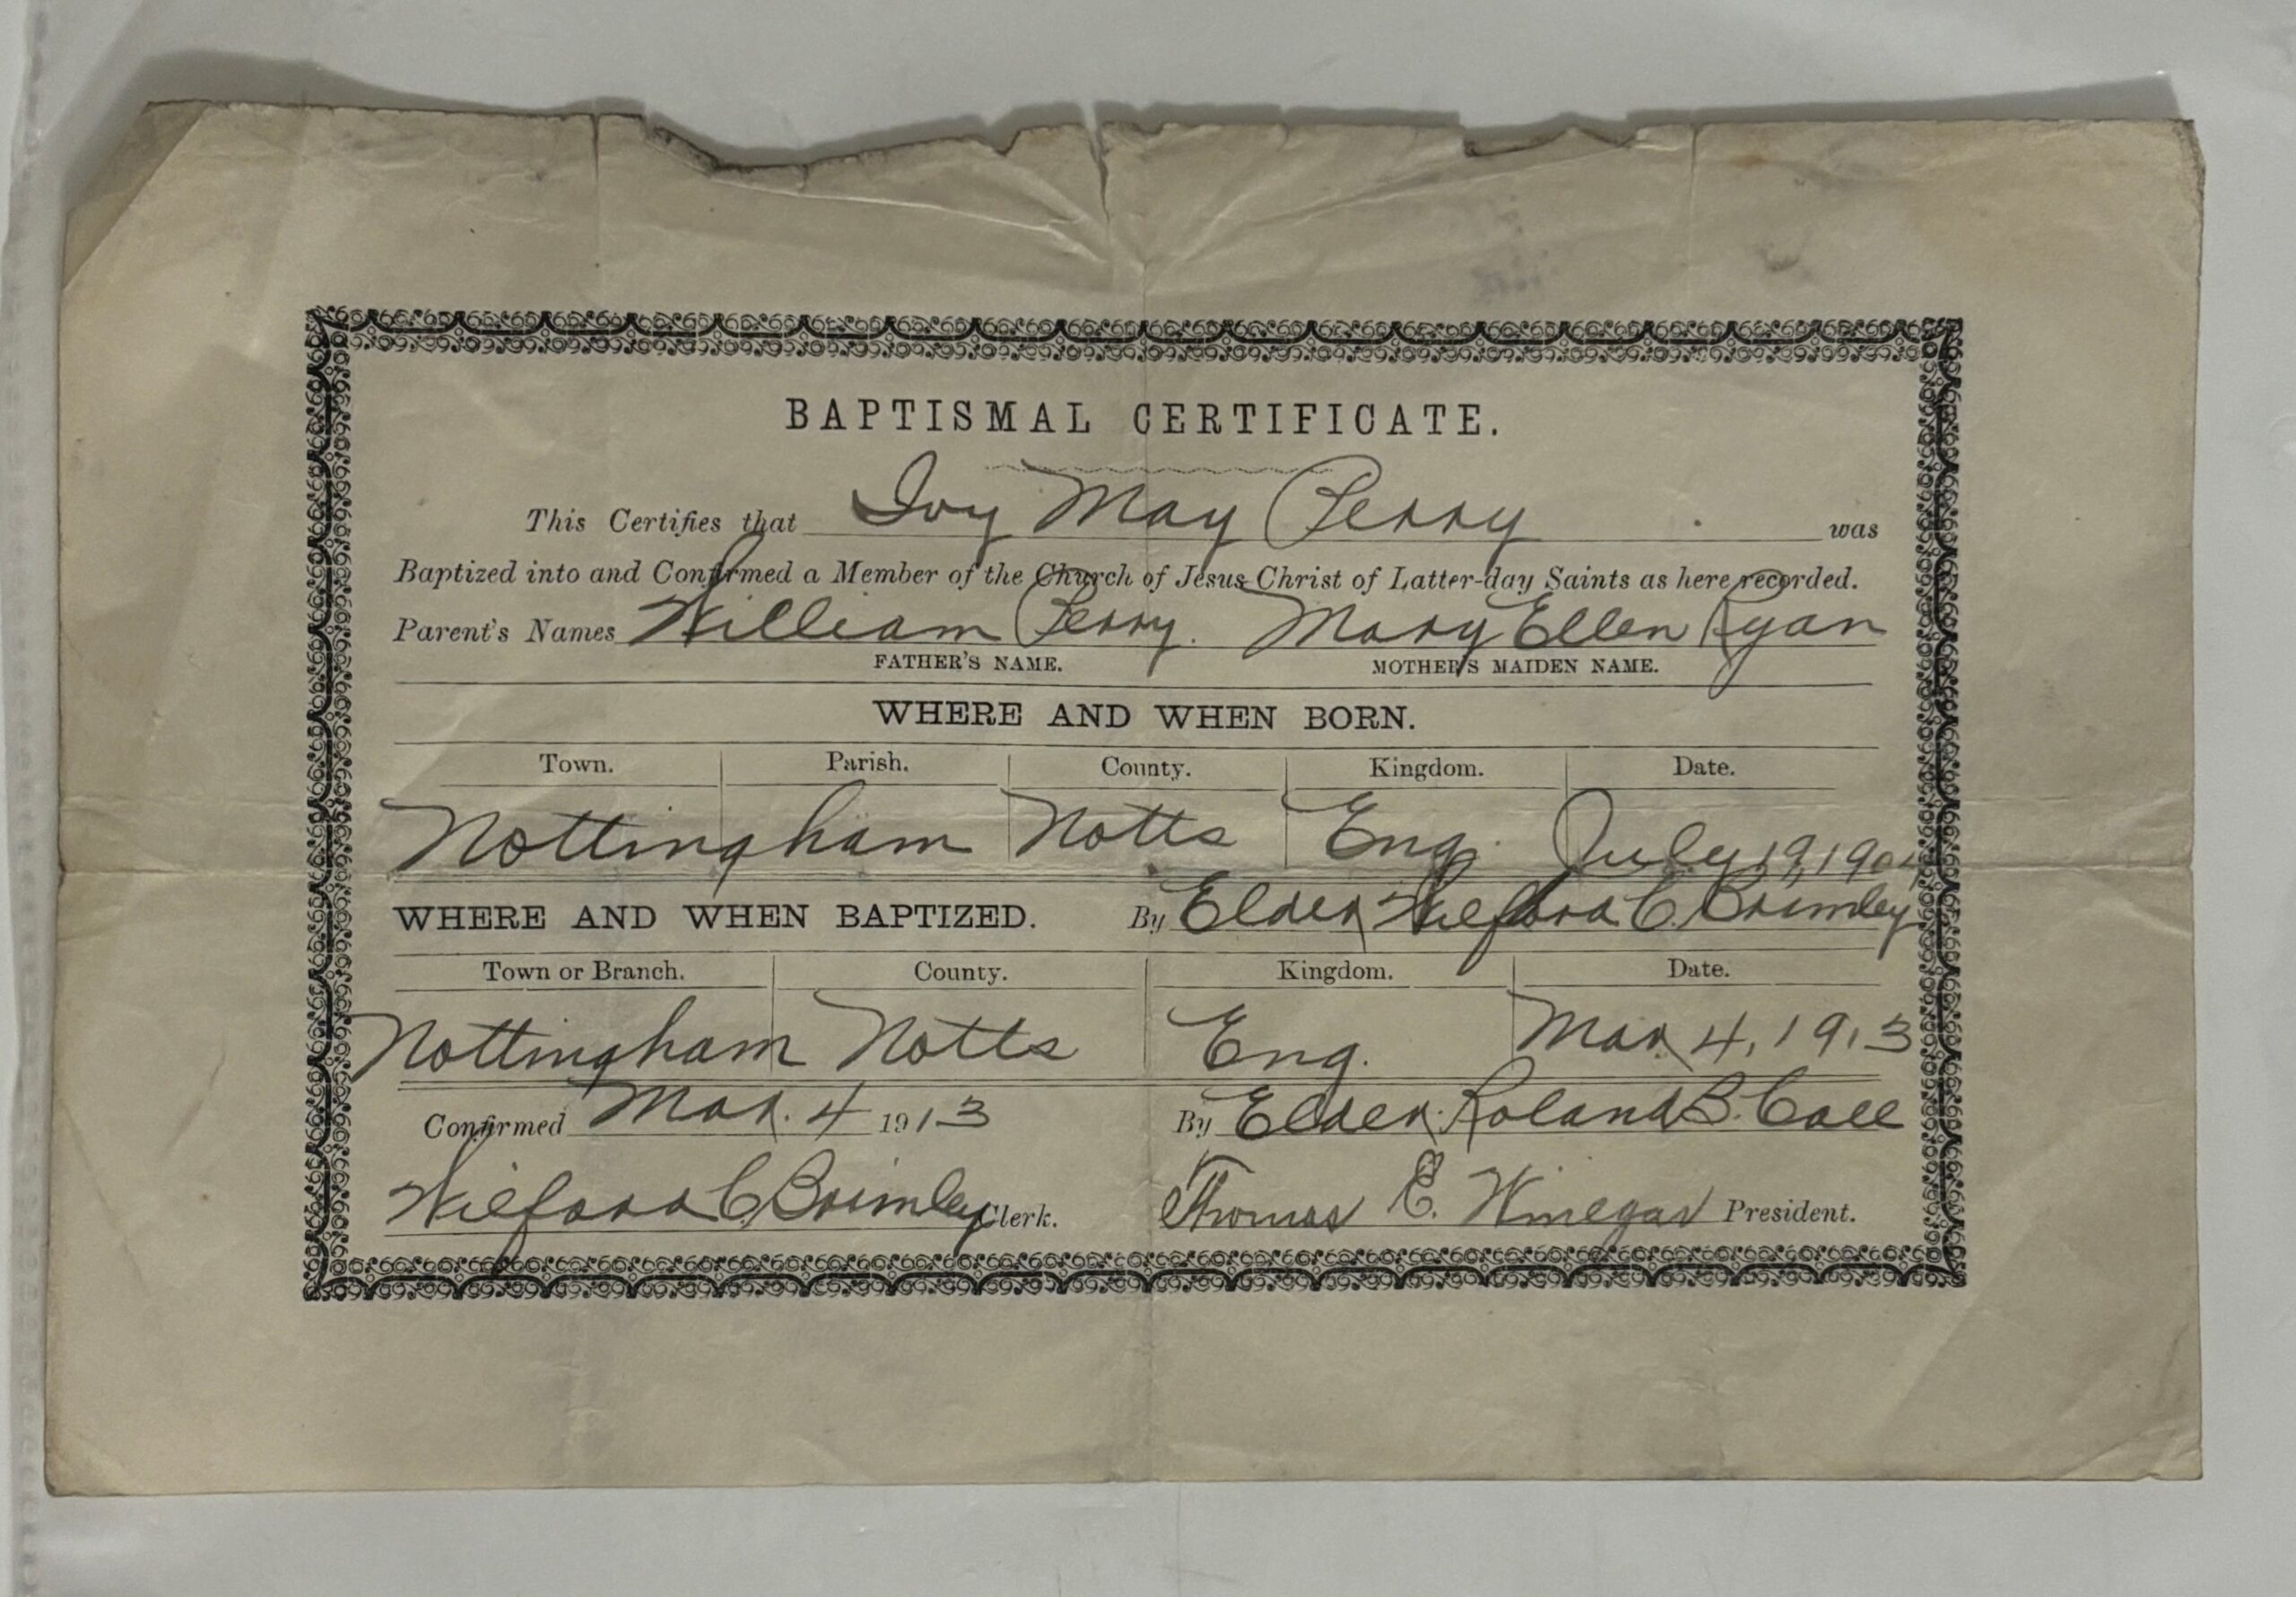 BAPTISMAL CERTIFICATE.
This Certifies that Ivy May Perry was
Baptized into and Confirmed a Member of the Church of Jesus Christ of Latter-day Saints as here recorded.
Parent's Names William Perry. Mary Ellen Ryan
FATHER'S NAME. MOTHER'S MAIDEN NAME.
WHERE AND WHEN BORN.
Town. Parish. County. Kingdom. Date.
Nottingham Notts Eng. July 19, 1904
WHERE AND WHEN BAPTIZED. By Elder Wilford C. Brimley
Town or Branch. County. Kingdom. Date.
Nottingham Notts Eng. Mar. 4, 1913
Confirmed Mar. 4 1913 By Elder Roland B. Call
Wilford C. Brimley Clerk. Thomas E. Winegar President.